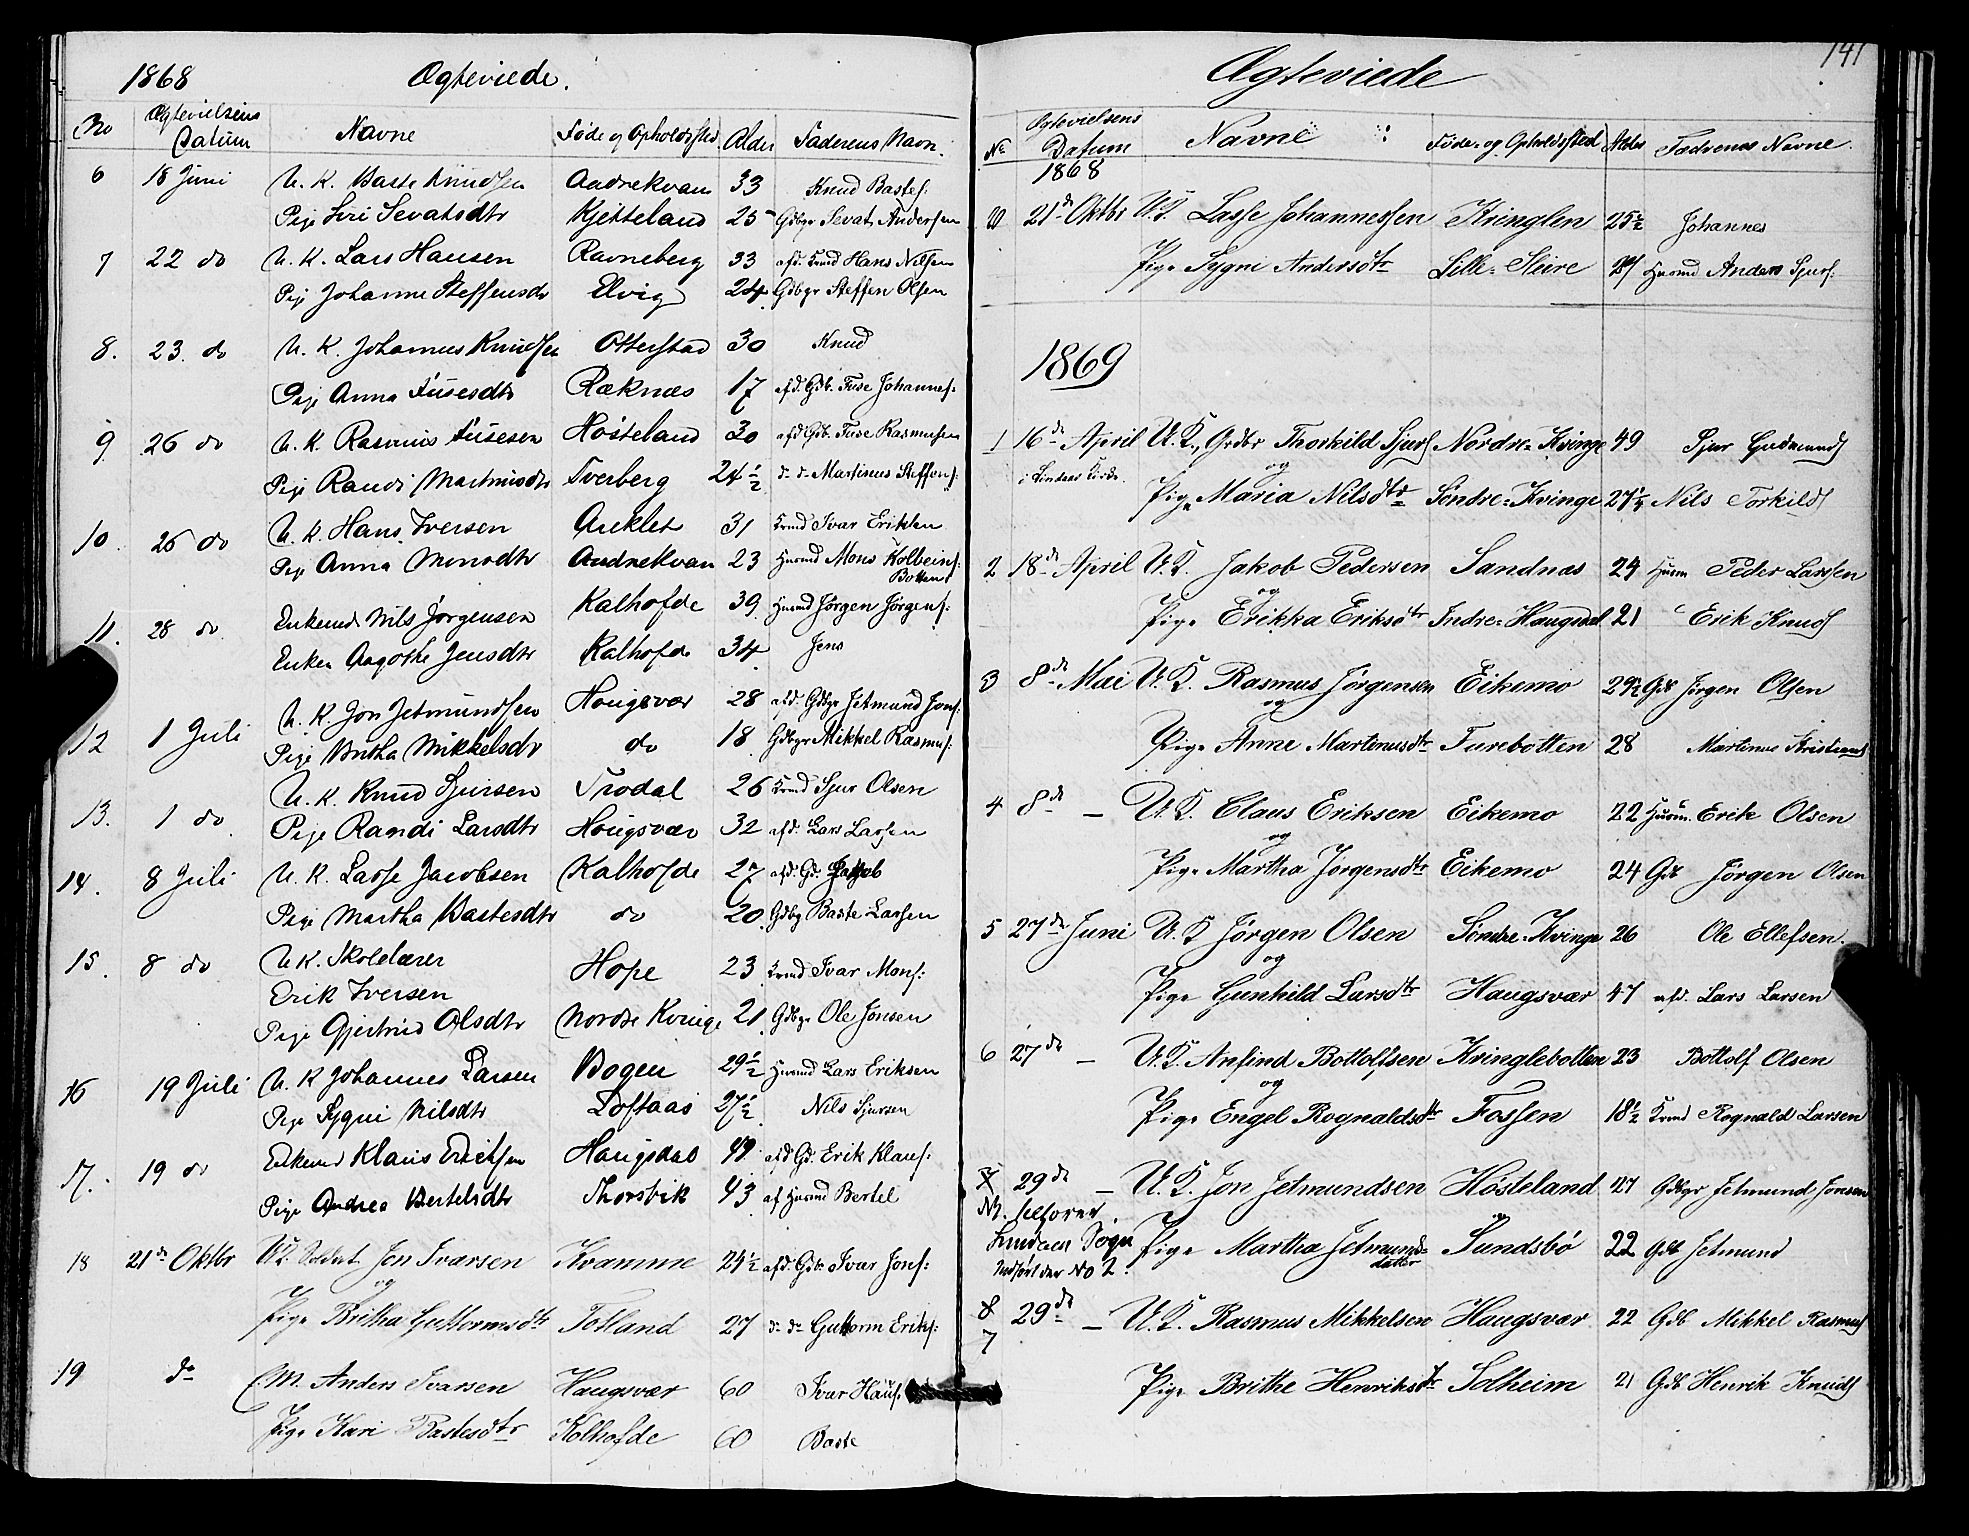 1868 Ægteviede.
No Ægtevielsens Datum Navne Føde og Opholdssted Alder Faderens Navn.
6 18 Juni U. K. Baste Knudsen Andrekvam 33 Knud Bastes:
Pige Siri Sevatsdtr Kjetteland 25 Gdbgr Sevat Andersen
7 22 do U. K. Lars Hansen Ravneberg 33 afd. Hans Nilsen
Pige Johanne Steffensdtr Elvig 24. Gdbgr Steffen Olsen
8. 23. do U. K. Johannes Knudsen Otterstad 30 Knud
Pige Anna Fusesdtr Ræknæs 17 afd. Gdb. Fuse Johannes:
9. 26 do U. K. Rasmus Fusesen Høsteland 30 afd Gdb. Fuse Rasmussen
Pige Randi Martinusdtr Tverberg 24 1/2 d. d. Martinus Steffens:
10. 26 do U. K. Hans Iversen Auklet 31 Ivar Eriksen
Pige Anna Monsdtr Andrekvam 23 Husmd Mons Kolbeins: Botten
11. 28 do Enkemd Nils Jørgensen Kalhofde 39. Husmd Jørgen Jørgens:
Enken Aagothe Jensdtr Kalhofde 34. Jens
12 1 Juli U. K. Jon Jetmundsen Hougsvær 28 afd. Gdbgr Jetmund Jons:
Pige Britha Mikkelsdtr do 18 Gdbgr Mikkel Rasmus:
13. 1 do U. K. Knud Sjursen Trodal 26 Sjur Olsen
Pige Randi Larsdtr Hougsvær 32 afd. Lars Larsen
14. 8 Juli U. K. Lasse Jacobsen Kalhofde 27 afd. Gd. Jakob
Pige Martha Bastesdtr do 20. Gdbg Baste Larsen
15. 8 do U K. Skolelærer
Erik Iversen Hope 23 Ivar Mons:
Pige Gjertrud Olsdtr Nordre Kvinge 21. Gdbgr Ole Jonsen
16 19 Juli U. K Johannes Larsen Bogen 29 1/2 Husmd Lars Eriksen
Pige Sygni Nilsdtr Loftaas 27 1/2. Nils Sjursen
17. 19 do Enkemd Klaus Erichsen Haugsdal 49. afd Gd. Erik Klaus:
Pige Andrea Bertelsdtr Thorsvik 43. af Husmd Bertel
18 21de Oktbr U.K. Soldat Jon Ivarsen Kvamme 24 1/2 afd. Gdb Ivar Jons:
og
Pige Britha Guttormsdtr Totland 27 d. d. Guttorm Eriks:
19 do E.M. Anders Ivarsen Haugsvær 60 Ivar Hans:
Pige Kari Bastesdtr Kolhofde 60 Baste
141
Ægteviede
No Ægtevielsens Datum Navne Føde- og Opholdssted Alder Faderens Navne.
1868
20 21de Oktbr U.K. Lasse Johannessen Kringlen 25 1/2 Johannes
Pige Sygni Andersdtr Lille-Steire 24 Husmd Anders Sjurs:
1869
1 16de April U.K., Grdbr Thorkild Sjurs Nordre-Kvinge 49 Sjur Gudmunds
i Lindaas Kirke. og
Pige Maria Nilsdtr Søndre-Kvinge 27 1/4 Nils Torkilds
2 18de April U.K. Jakob Pedersen Sandnæs 24 Husm Peder Larsen
og
Pige Erikka Eriksdtr Indre-Haugsdal 21 Erik Knuds
3 8de Mai U.K. Rasmus Jørgensen Eikemo 29 1/2 Gdb Jørgen Olsen
og
Pige Anne Martinusdtr Furebotten 28 Martinus Kristians
4 8de — U.K. Claus Eriksen Eikemo 22 Husm. Erik Olsen
og
Pige Martha Jørgensdtr Eikemo 24 Gdb Jørgen Olsen
5 27de Juni U.K Jørgen Olsen Søndre-Kvinge 26 Ole Ellefsen.
og
Pige Gunhild Larsdtr Haugsvær 47 afd. Lars Larsen
6 27de — U.K. Anfind Bottolfsen Kvinglebotten 23 Bottolf Olsen
og
Pige Engel Rognaldsdtr Fossen 18 1/2 Rognald Larsen
7 29de — U.K. Jon Jetmundsen Høsteland 27 Gdbgr Jetmund Jonsen
Lindaas Sogn Pige Martha Jetmundsdatter Sundsbø 22 Gdb Jetmund
Indført der No 2.
8 29de — U.K. Rasmus Mikkelsen Haugsvær 22 Gdb Mikkel Rasmus
7
Pige Brithe Henriksdtr Solheim 21 Gdb Henrik Knuds